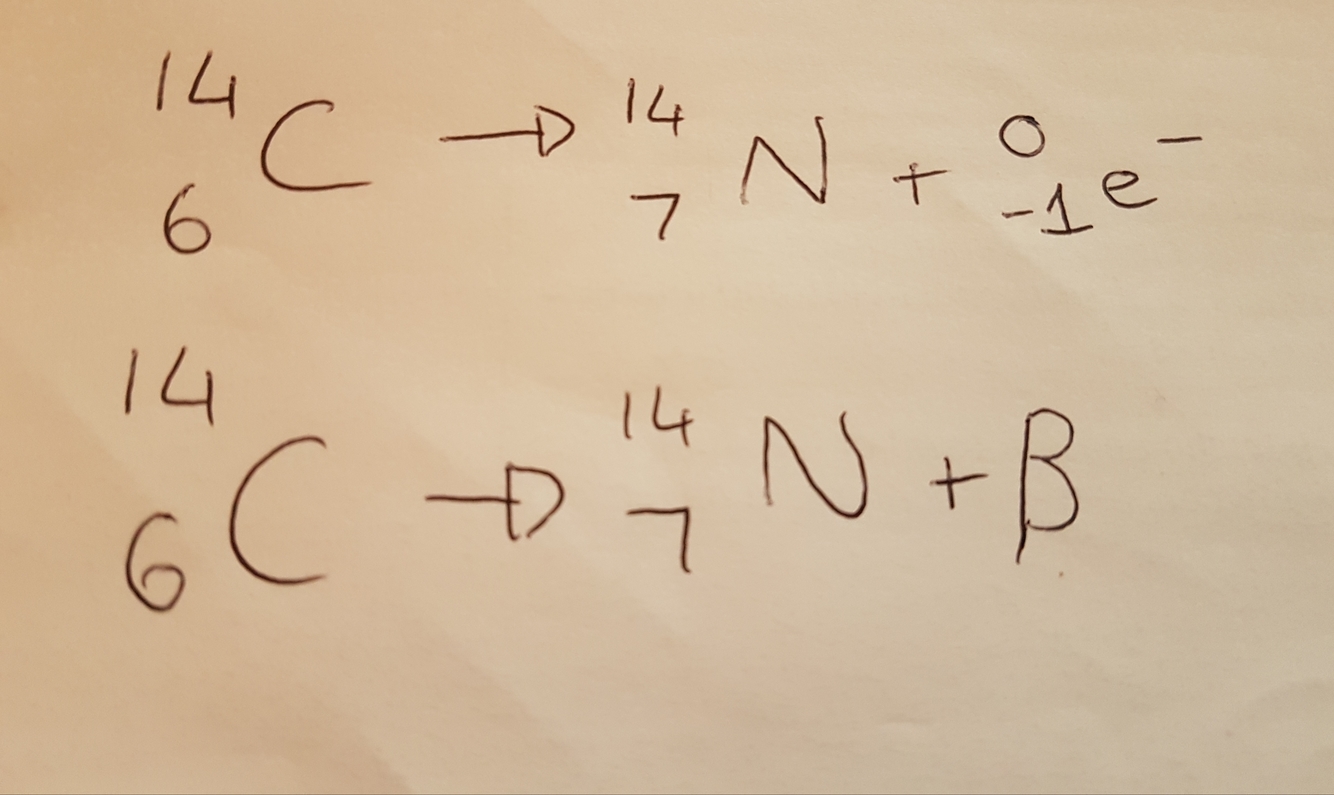 ¹⁴₆C → ¹⁴₇N + ⁰₋₁e⁻
¹⁴₆C → ¹⁴₇N + β